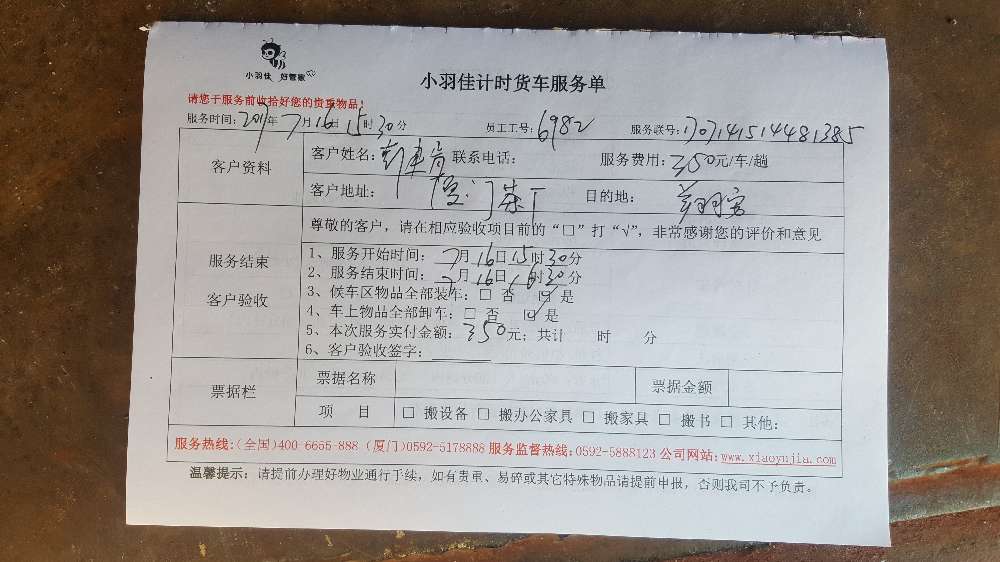 小羽佳 好管家
小羽佳计时货车服务单
请您于服务前收拾好您的贵重物品!
服务时间: 2017年7月16日15时30分 员工工号: 6982 服务联号: 17071415144481385
客户资料
客户姓名: 联系电话: 服务费用: 350元/车/趟
客户地址: 目的地:
尊敬的客户，请在相应验收项目前的“□”打“√”，非常感谢您的评价和意见
服务结束
客户验收
1、服务开始时间: 7月16日15时30分
2、服务结束时间: 7月16日16时30分
3、候车区物品全部装车: □ 否 ☑ 是
4、车上物品全部卸车: □ 否 ☑ 是
5、本次服务实付金额: 350元; 共计 时 分
6、客户验收签字:
票据栏
票据名称 票据金额
项 目 □ 搬设备 □ 搬办公家具 □ 搬家具 □ 搬书 □ 其他:
服务热线:(全国)400-6655-888 (厦门)0592-5178888 服务监督热线:0592-5888123 公司网站:www.xiaoyujia.com
温馨提示: 请提前办理好物业通行手续，如有贵重、易碎或其它特殊物品请提前申报，否则我司不予负责。